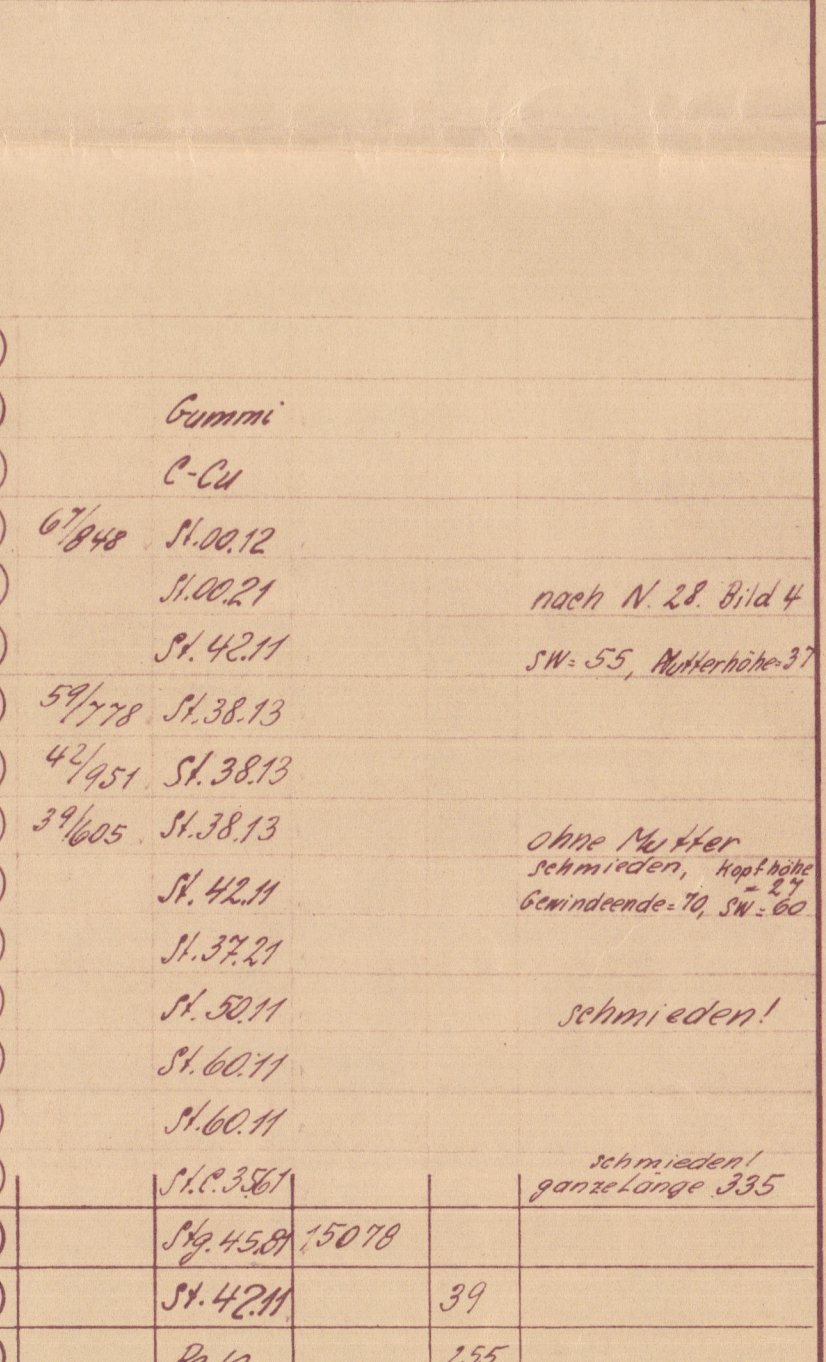 Gummi
C-Cu
67/848 St.00.12
St.00.21 nach N. 28. Bild 4
St. 42.11 SW= 55, Mutterhöhe=37
59/778 St.38.13
42/951 St.38.13
39/605 St.38.13 ohne Mutter
schmieden, Kopfhöhe
= 27
St. 42.11 Gewindeende= 70, SW= 60
St.37.21
St. 50.11 schmieden!
St. 60.11
St.60.11
schmieden!
St.C.35.61 ganze Länge 335
Stg. 45.81 15078
St. 42.11 39
255